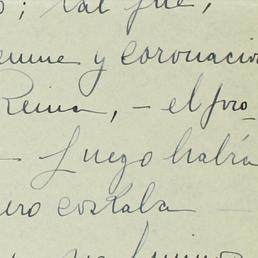 ; tal fué,
y coronación
Reina, — el pro-
— Luego habría
costaba